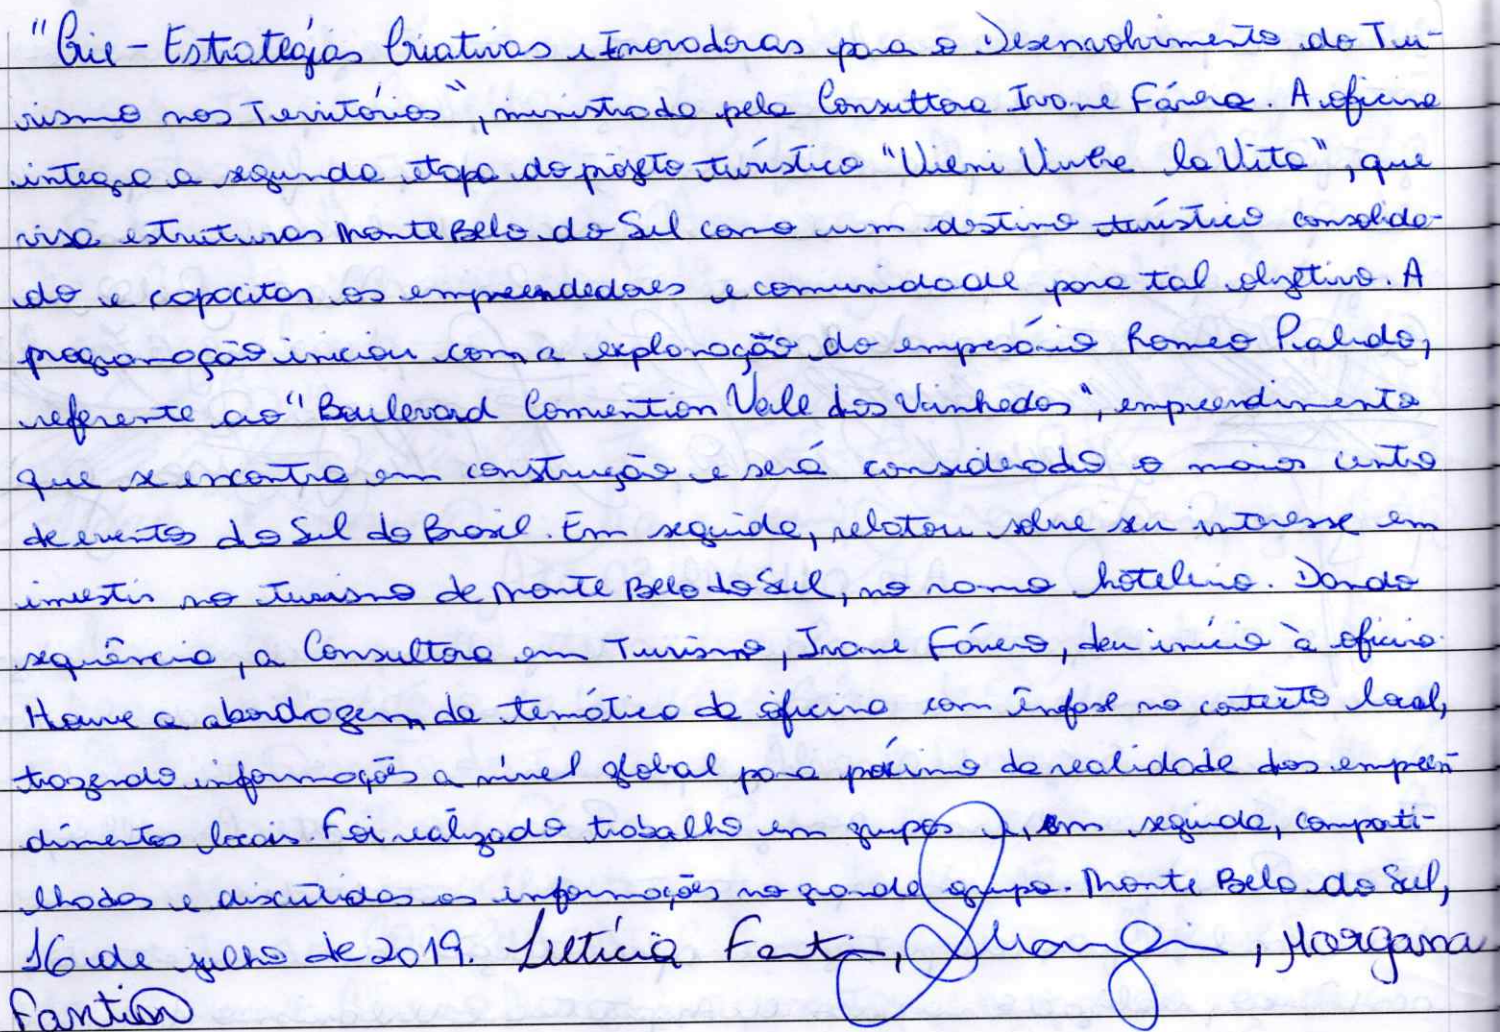 "Crie - Estratégias Criativas e Inovadoras para o Desenvolvimento do Tu-
rismo nos Territórios", ministrada pela Consultora Ivane Fávero. A oficina
integra a segunda etapa do projeto turístico "Vieni Vivere la Vita", que
visa estruturar Monte Belo do Sul como um destino turístico consolida-
do e capacitar os empreendedores e comunidade para tal objetivo. A
programação iniciou com a explanação do empresário Romeo
referente ao "Boulevard Convention Vale dos Vinhedos", empreendimento
que se encontra em construção e será considerado o maior centro
de eventos do Sul do Brasil. Em seguida, relatou sobre seu interesse em
investir no turismo de Monte Belo do Sul, no ramo hoteleiro. Dando
sequência, a Consultora em Turismo, Ivane Fávero, deu início à oficina.
Houve a abordagem da temática da oficina com ênfase no contexto local,
trazendo informações a nível global para próximo da realidade dos empreen
dimentos locais. Foi realizado trabalho em grupos e, em seguida, comparti-
lhadas e discutidas as informações no grande grupo. Monte Belo do Sul,
16 de julho de 2019. Letícia , , Morgana
Fantin